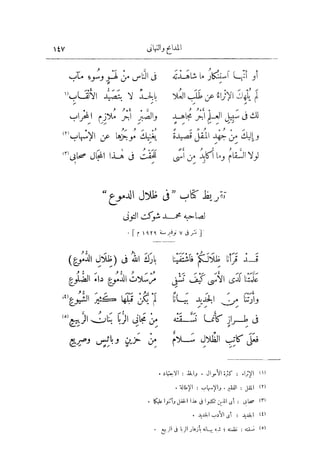 المدائح والتهانى ١٤٧
أو أنها استنكار ما شاهدته فى الناس من لهو وسوء مآب
لم يلهك الإثراء عن طلب العلا بالجد لا بتصيد الألقاب (١)
لك فى سبيل العلم أجر مجاهد والصبر أجر ملازم المحراب
وإليك من جهد المقل قصيدة يغنيك موجزها عن الإسهاب (٢)
لولا السقام وما أكابد من أسى للحقت فى هذا المجال صحابى (٣)
تقريظ كتاب "فى ظلال الدموع"
لصاحبه محمد شوكت التونى
[ نشر فى ٧ نوفمبر سنة ١٩٢٩ م ]
قد قرأنا ظلالكم فاشتفينا بارك الله فى (ظلال الدموع)
علمتنا لدى الأسى كيف تشفى مرسلات الدموع داء الضلوع
وأرتنا من الجديد بيانا لم يكن قبلها كثير الشيوع (٤)
فى طراز كأنما نسقته من مجانى الربا بنات الربيع (٥)
فعلى كاتب الظلال سلام من حزين وبائس وصريع
(١) الإثراء : كثرة الأموال . والجد : الاجتهاد .
(٢) المقل : الفقير . والإسهاب : الإطالة .
(٣) صحابى : أى الذين تكلموا فى هذا الحفل وأثنوا عليكم .
(٤) الجديد : أى الأدب الجديد .
(٥) نسقته : نظمته ؛ شبه بيانه بأزهار الربا فى الربيع .